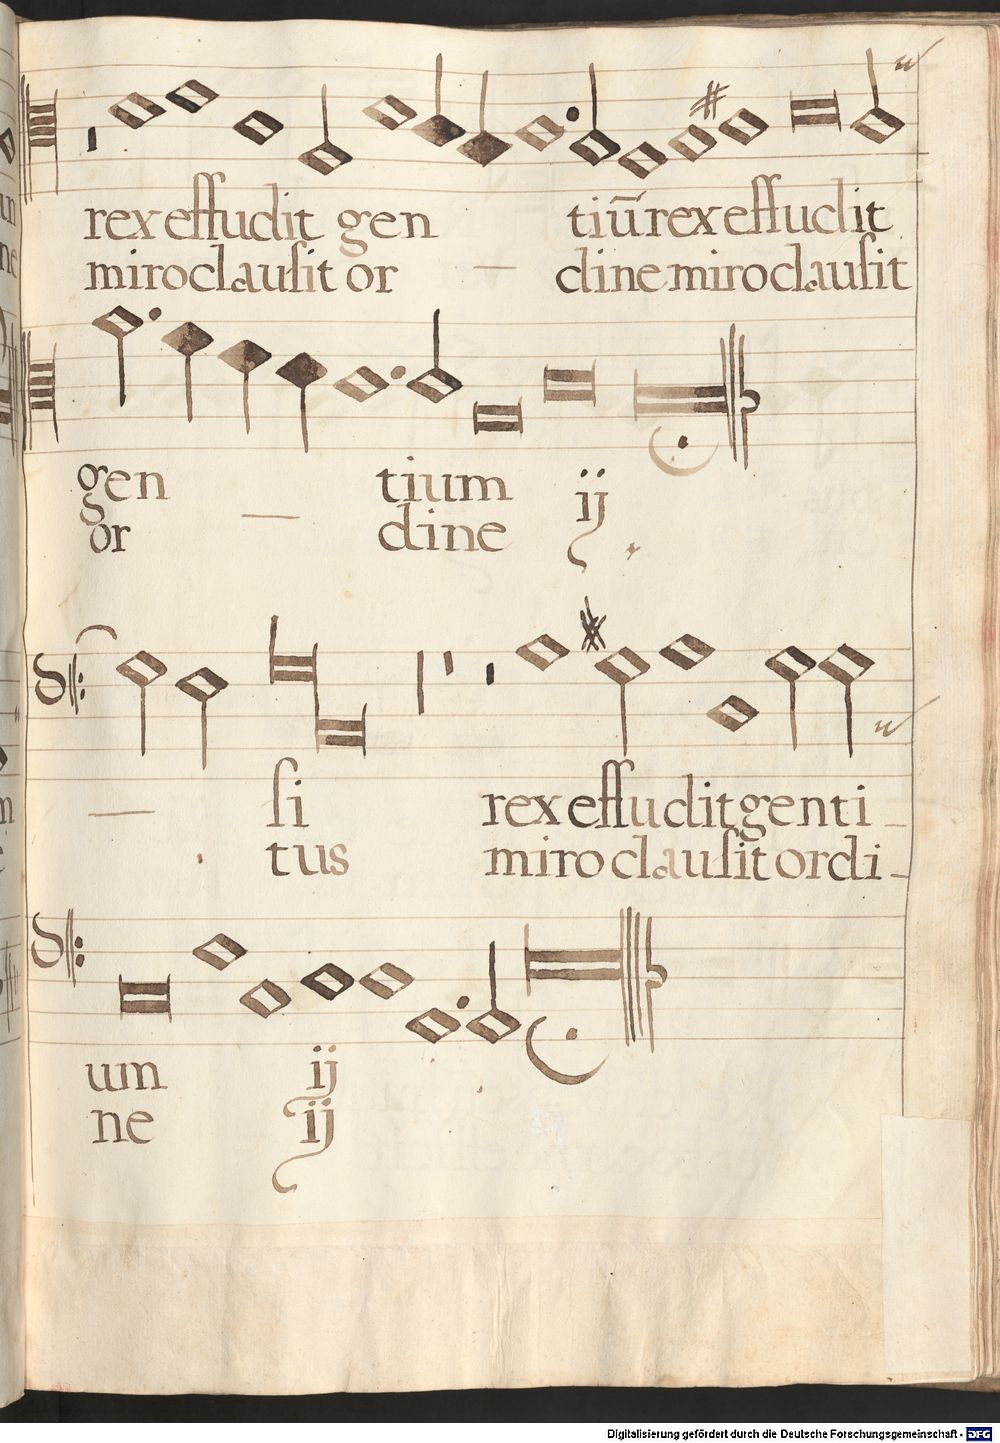 rex effudit gen tiūrex effudit
miro clausit or – dine miro clausit
gen tium ij
or – dine
– si rex effudit genti –
tus miro clausit ordi –
um ij
ne ij
Digitalisierung gefördert durch die Deutsche Forschungsgemeinschaft - DFG